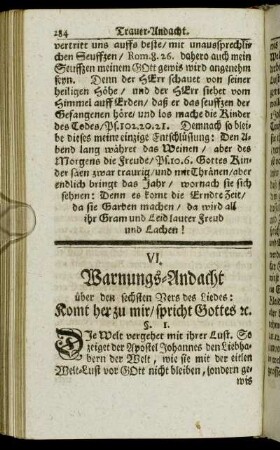 284 Trauer-Andacht.
vertritt uns auffs beste/ mit unaussprechli-
chen Seuffzen/ Rom. 8. 26. dahero auch mein
Seuffzen meinem GOtt gewis wird angenehm
seyn. Denn der HErr schauet von seiner
heiligen Höhe/ und der HErr siehet vom
Himmel auff Erden/ daß er das seuffzen der
Gefangenen höre/ und los mache die Kinder
des Todes/ Ps. 102. 20. 21. Demnach so blei-
be dieses meine einzige Entschliessung: Den A-
bend lang währet das Weinen/ aber des
Morgens die Freude/ Ps. 30. 6. Gottes Kin-
der säen zwar traurig/ und mit Thränen/ aber
endlich bringt das Jahr/ wornach sie sich
sehnen: Denn es komt die Erndte Zeit/
da sie Garben machen/ da wird all
ihr Gram und Leid lauter Freud
und Lachen!
VI.
Warnungs-Andacht
über den sechsten Vers des Liedes:
Komt her zu mir/ spricht Gottes ꝛc.
§. 1.
DIe Welt vergehet mit ihrer Lust. So
zeiget der Apostel Johannes den Liebha-
bern der Welt, wie sie mit der eitlen
Welt-Lust vor GOtt nicht bleiben, sondern ge-
wis